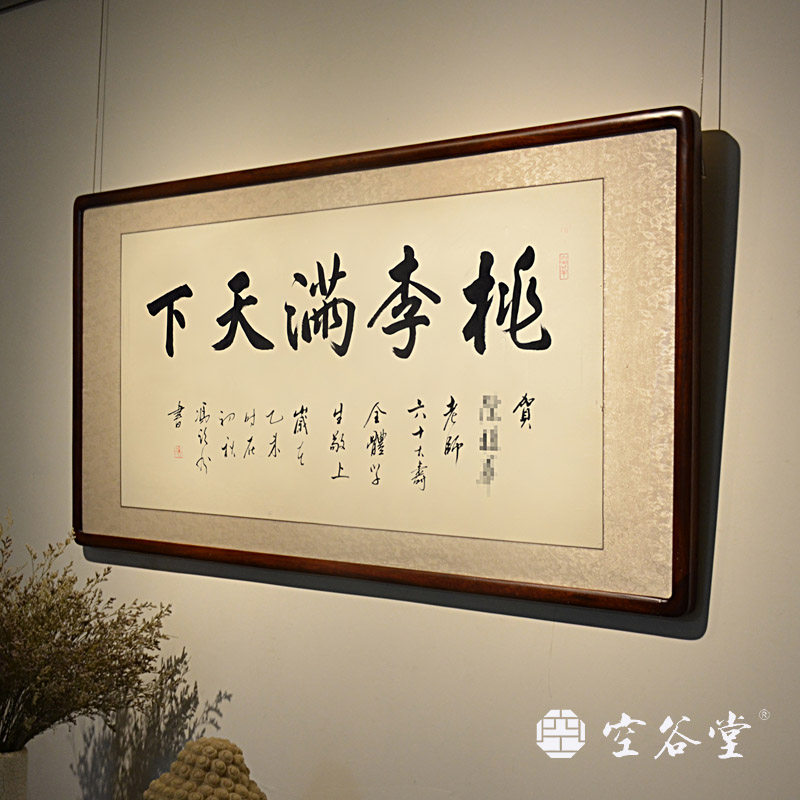 桃李滿天下
賀
老師
六十大壽
全體學
生敬上
歲在
乙未
時在
初秋
書
空谷堂®